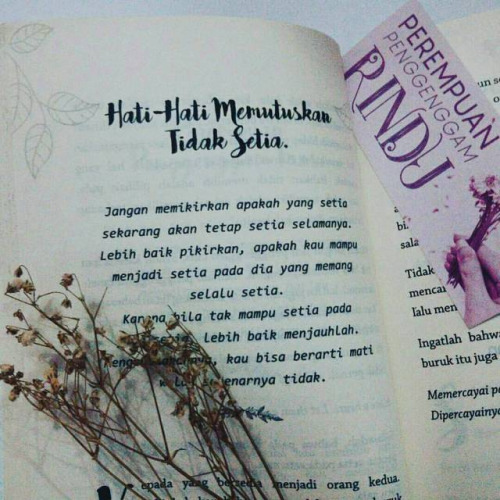 Hati-Hati Memutuskan
Tidak Setia.
Jangan memikirkan apakah yang setia
sekarang akan tetap setia selamanya.
Lebih baik pikirkan, apakah kau mampu
menjadi setia pada dia yang memang
selalu setia.
Karena bila tak mampu setia pada
lebih baik menjauhlah.
kau bisa berarti mati
tidak.
yang bersedia menjadi orang kedua.
PEREMPUAN
PENGGENGGAM
RINDU
un
sala
Tidak
mencar
lalu men
Ingatlah bahwa
buruk itu juga
Memercayai pe
Dipercayainya